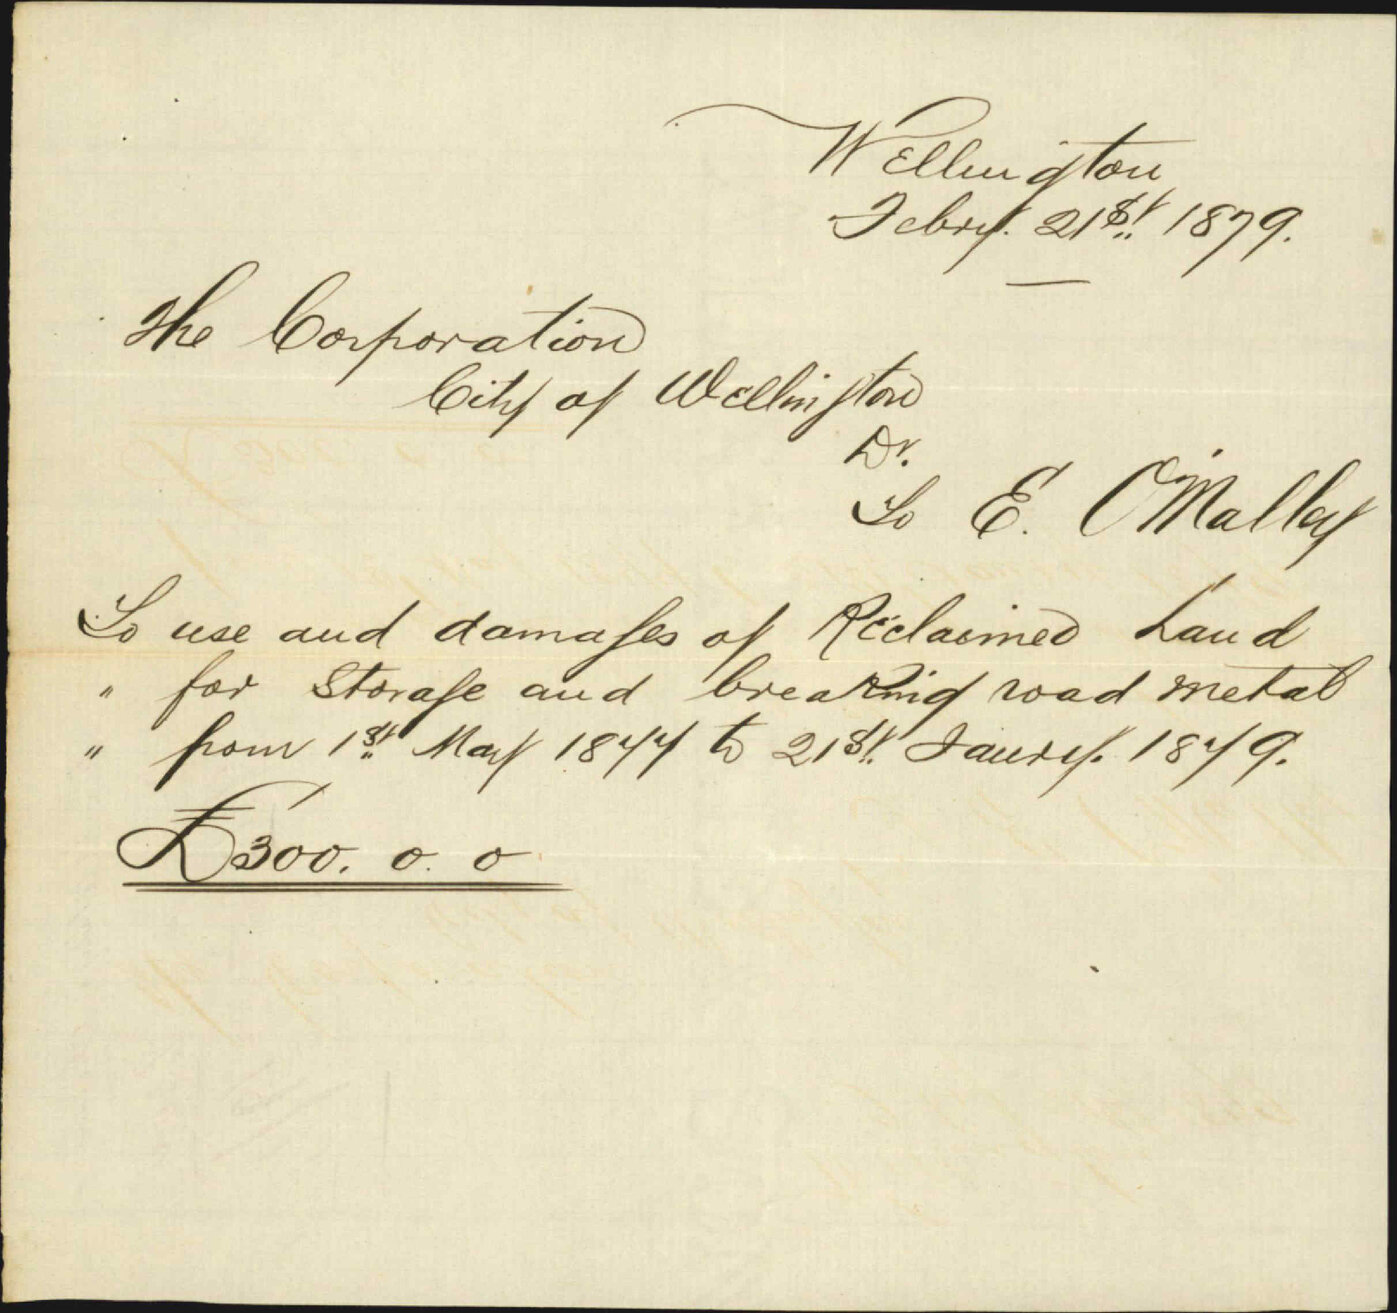 Wellington
Febry. 21st. 1879.
The Corporation
City of Wellington
Dr.
To E. O'Malley
To use and damages of Reclaimed Land
" for Storage and breaking road metal
" from 1st. May 1877 to 21st. Jaury. 1879.
£300. 0. 0